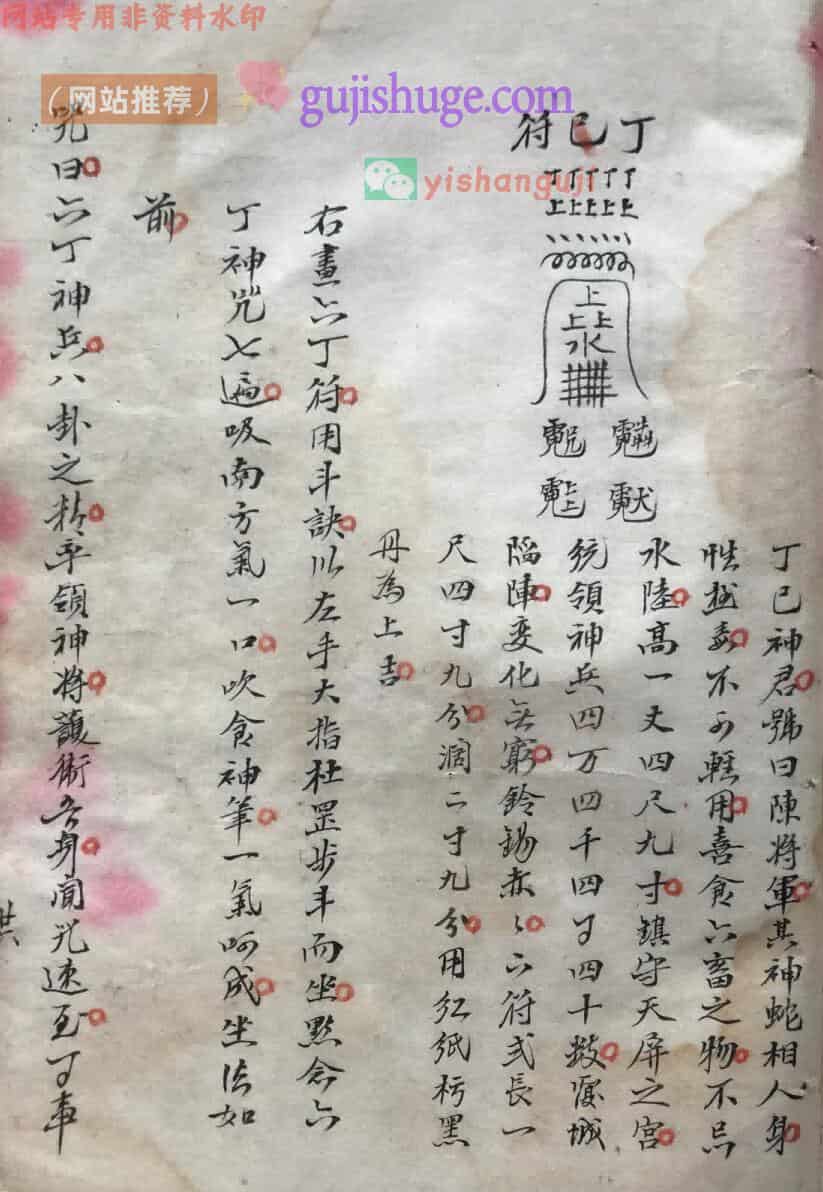 网站专用非资料水印
（网站推荐）
gujishuge.com
yishanguji
丁巳符
丁丁丁丁丁
上上上上上
上
上上
水
丁巳神君號曰陳將軍其神蛇相人身
性 不可輕用喜食六畜之物不忌
水陸高一丈四尺九寸鎮守天屏之宮
統領神兵四万四千四百四十 城
陷陣变化无窮鈴錫 符式長一
尺四寸九分濶二寸九分用红纸 黑
丹為上吉
右畫六丁符用斗訣以左手大指 罡步斗而坐黙念六
丁神咒七遍吸南方氣一口吹食神筆一氣呵成坐法如
前
咒曰六丁神兵八卦之精率領神將護衛吾身聞咒速至